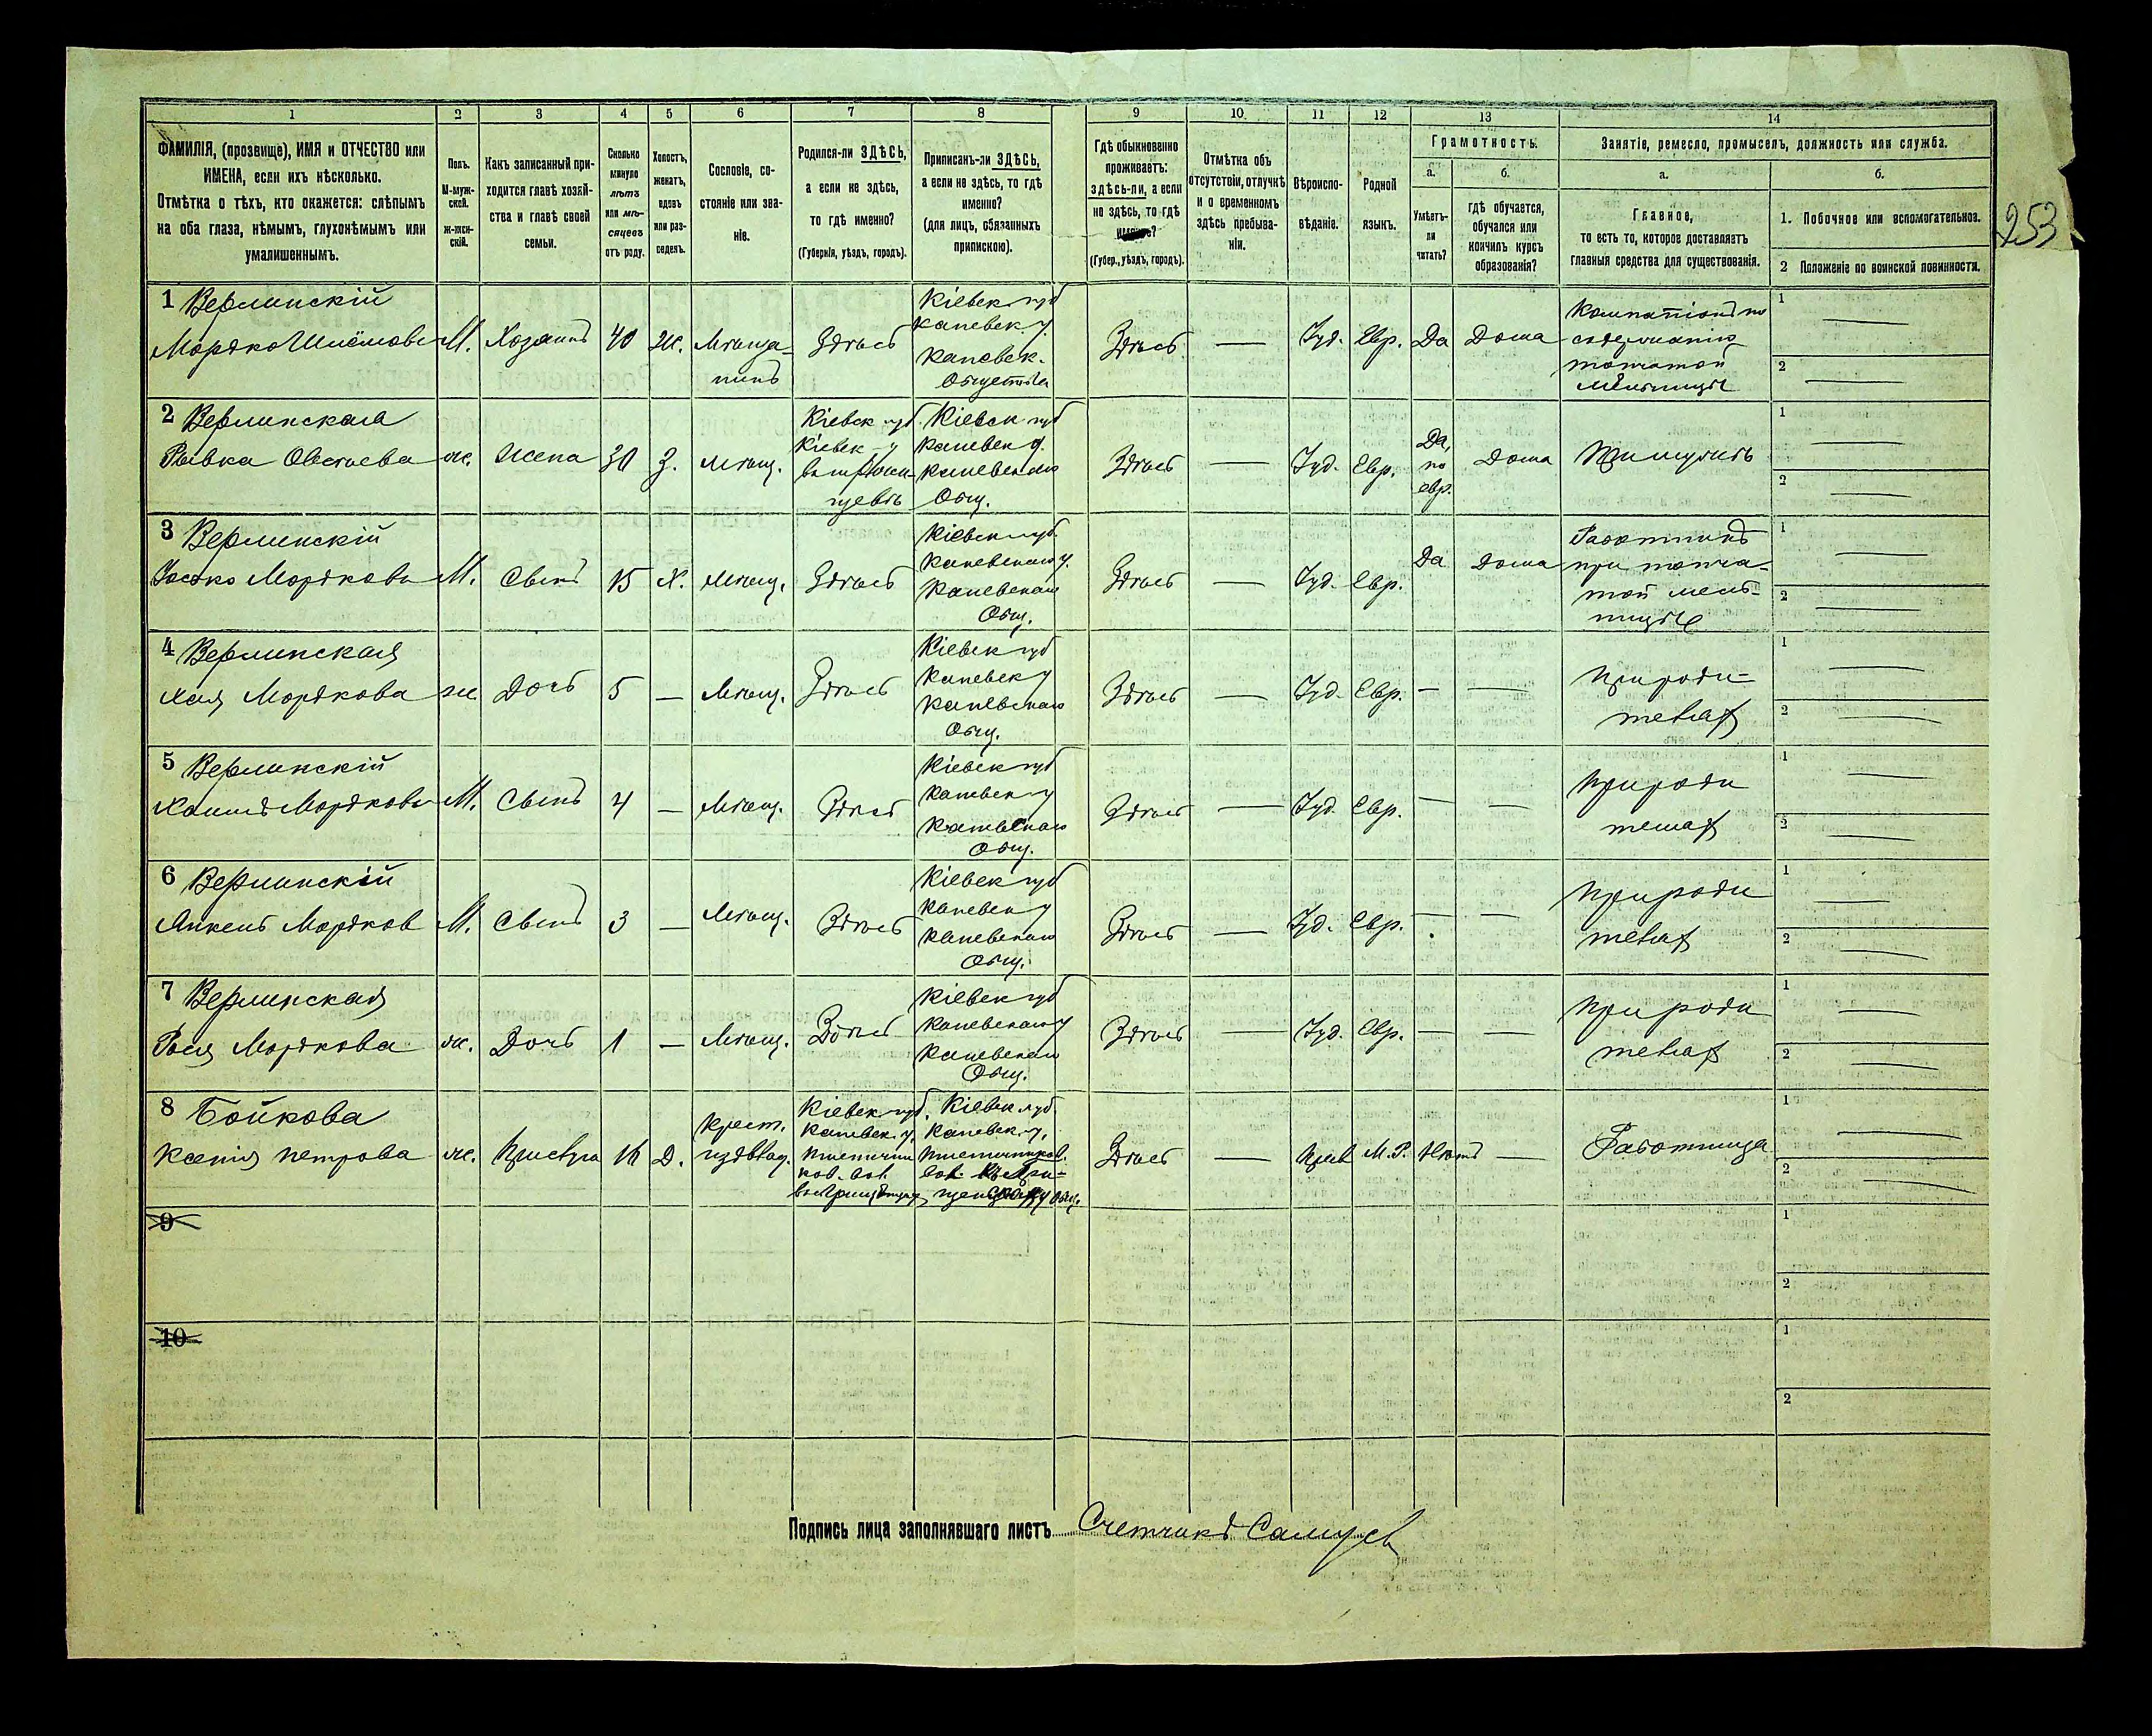 1 2 3 4 5 6 7 8 9 10 11 12 13 14
ФАМИЛІЯ, (прозвище), ИМЯ и ОТЧЕСТВО или
ИМЕНА, если ихъ нѣсколько.
Отмѣтка о тѣхъ, кто окажется: слѣпымъ
на оба глаза, нѣмымъ, глухонѣмымъ или
умалишеннымъ.
Полъ.
М-муж-
ской.
Ж-жен-
скій.
Какъ записанный при-
ходится главѣ хозяй-
ства и главѣ своей
семьи.
Сколько
минуло
лѣтъ
или мѣ-
сяцевъ
отъ роду.
Холостъ,
женатъ,
вдовъ
или раз-
веденъ.
Сословіе, со-
стояніе или зва-
ніе.
Родился-ли ЗДѢСЬ,
а если не здѣсь,
то гдѣ именно?
(Губернія, уѣздъ, городъ).
Приписанъ-ли ЗДѢСЬ,
а если не здѣсь, то гдѣ
именно?
(для лицъ, обязанныхъ
припискою).
Гдѣ обыкновенно
проживаетъ:
здѣсь-ли, а если
не здѣсь, то гдѣ
(Губер., уѣздъ, городъ).
Отмѣтка объ
отсутствіи, отлучкѣ
и о временномъ
здѣсь пребыва-
ніи.
Вѣроиспо-
вѣданіе.
Родной
языкъ.
Грамотность.
а.
Умѣетъ-
ли
читать?
б.
гдѣ обучается,
обучался или
кончилъ курсъ
образованія?
Занятіе, ремесло, промыселъ, должность или служба.
а.
Главное,
то есть то, которое доставляетъ
главныя средства для существованія.
б.
1. Побочное или вспомогательное.
2 Положеніе по воинской повинности.
253
1 Верлинскій
Мордко Шлёмовъ М. Хозяинъ 40 Ж. Мѣща-
нинъ Здѣсь
Кіевск. губ
Каневск. у.
Каневск.
Общества
Здѣсь — Іуд. Евр. Да Дома
Компаніонъ по
содержанію
топчатой
мельницы
1 —
2 —
2 Верлинская
Рывка Овсѣева ж. Жена 30 З. Мѣщ.
Кіевск губ.
Кіевск у
Кіевск губ
Каневск у.
Каневскаго
Общ.
Здѣсь — Іуд. Евр.
Да,
по
евр.
Дома
1 —
2 —
3 Верлинскій
Іосько Мордковъ М. Сынъ 15 Х. Мѣщ. Здѣсь
Кіевск губ.
Каневскаго у.
Каневскаго
Общ.
Здѣсь — Іуд. Евр. Да Дома
Работникъ
при топча-
той мель-
ницѣ
1 —
2 —
4 Верлинская
Хая Мордкова ж. Дочь 5 — Мѣщ. Здѣсь
Кіевск губ
Каневск у
Каневскаго
Общ.
Здѣсь — Іуд. Евр. — —
При роди-
теляхъ
1 —
2 —
5 Верлинскій
Хаимъ Мордковъ М. Сынъ 4 — Мѣщ. Здѣсь
Кіевск губ
Каневск у
Каневскаго
Общ.
Здѣсь — Іуд. Евр. — —
При роди
теляхъ
1 —
2 —
6 Верлинскій
Анкель Мордков М. Сынъ 3 — Мѣщ. Здѣсь
Кіевск губ
Каневск у
Каневскаго
Общ.
Здѣсь — Іуд. Евр. — —
При роди
теляхъ
1 —
2 —
7 Верлинская
Рося Мордкова ж. Дочь 1 — Мѣщ. Здѣсь
Кіевск губ
Каневскаго у
Каневскаго
Общ.
Здѣсь — Іуд. Евр. — —
При роди
теляхъ
1 —
2 —
8 Бойкова
Ксенія Петрова ж. Прислуга 16 Д.
Крест.
Кіевск губ.
Каневск. у.
Кіевск губ.
Каневск. у.
Здѣсь — Прав М. Р. Нѣтъ — Работница
1 —
2 —
9
1
2
10
1
2
Подпись лица заполнявшаго листъ Счетчикъ